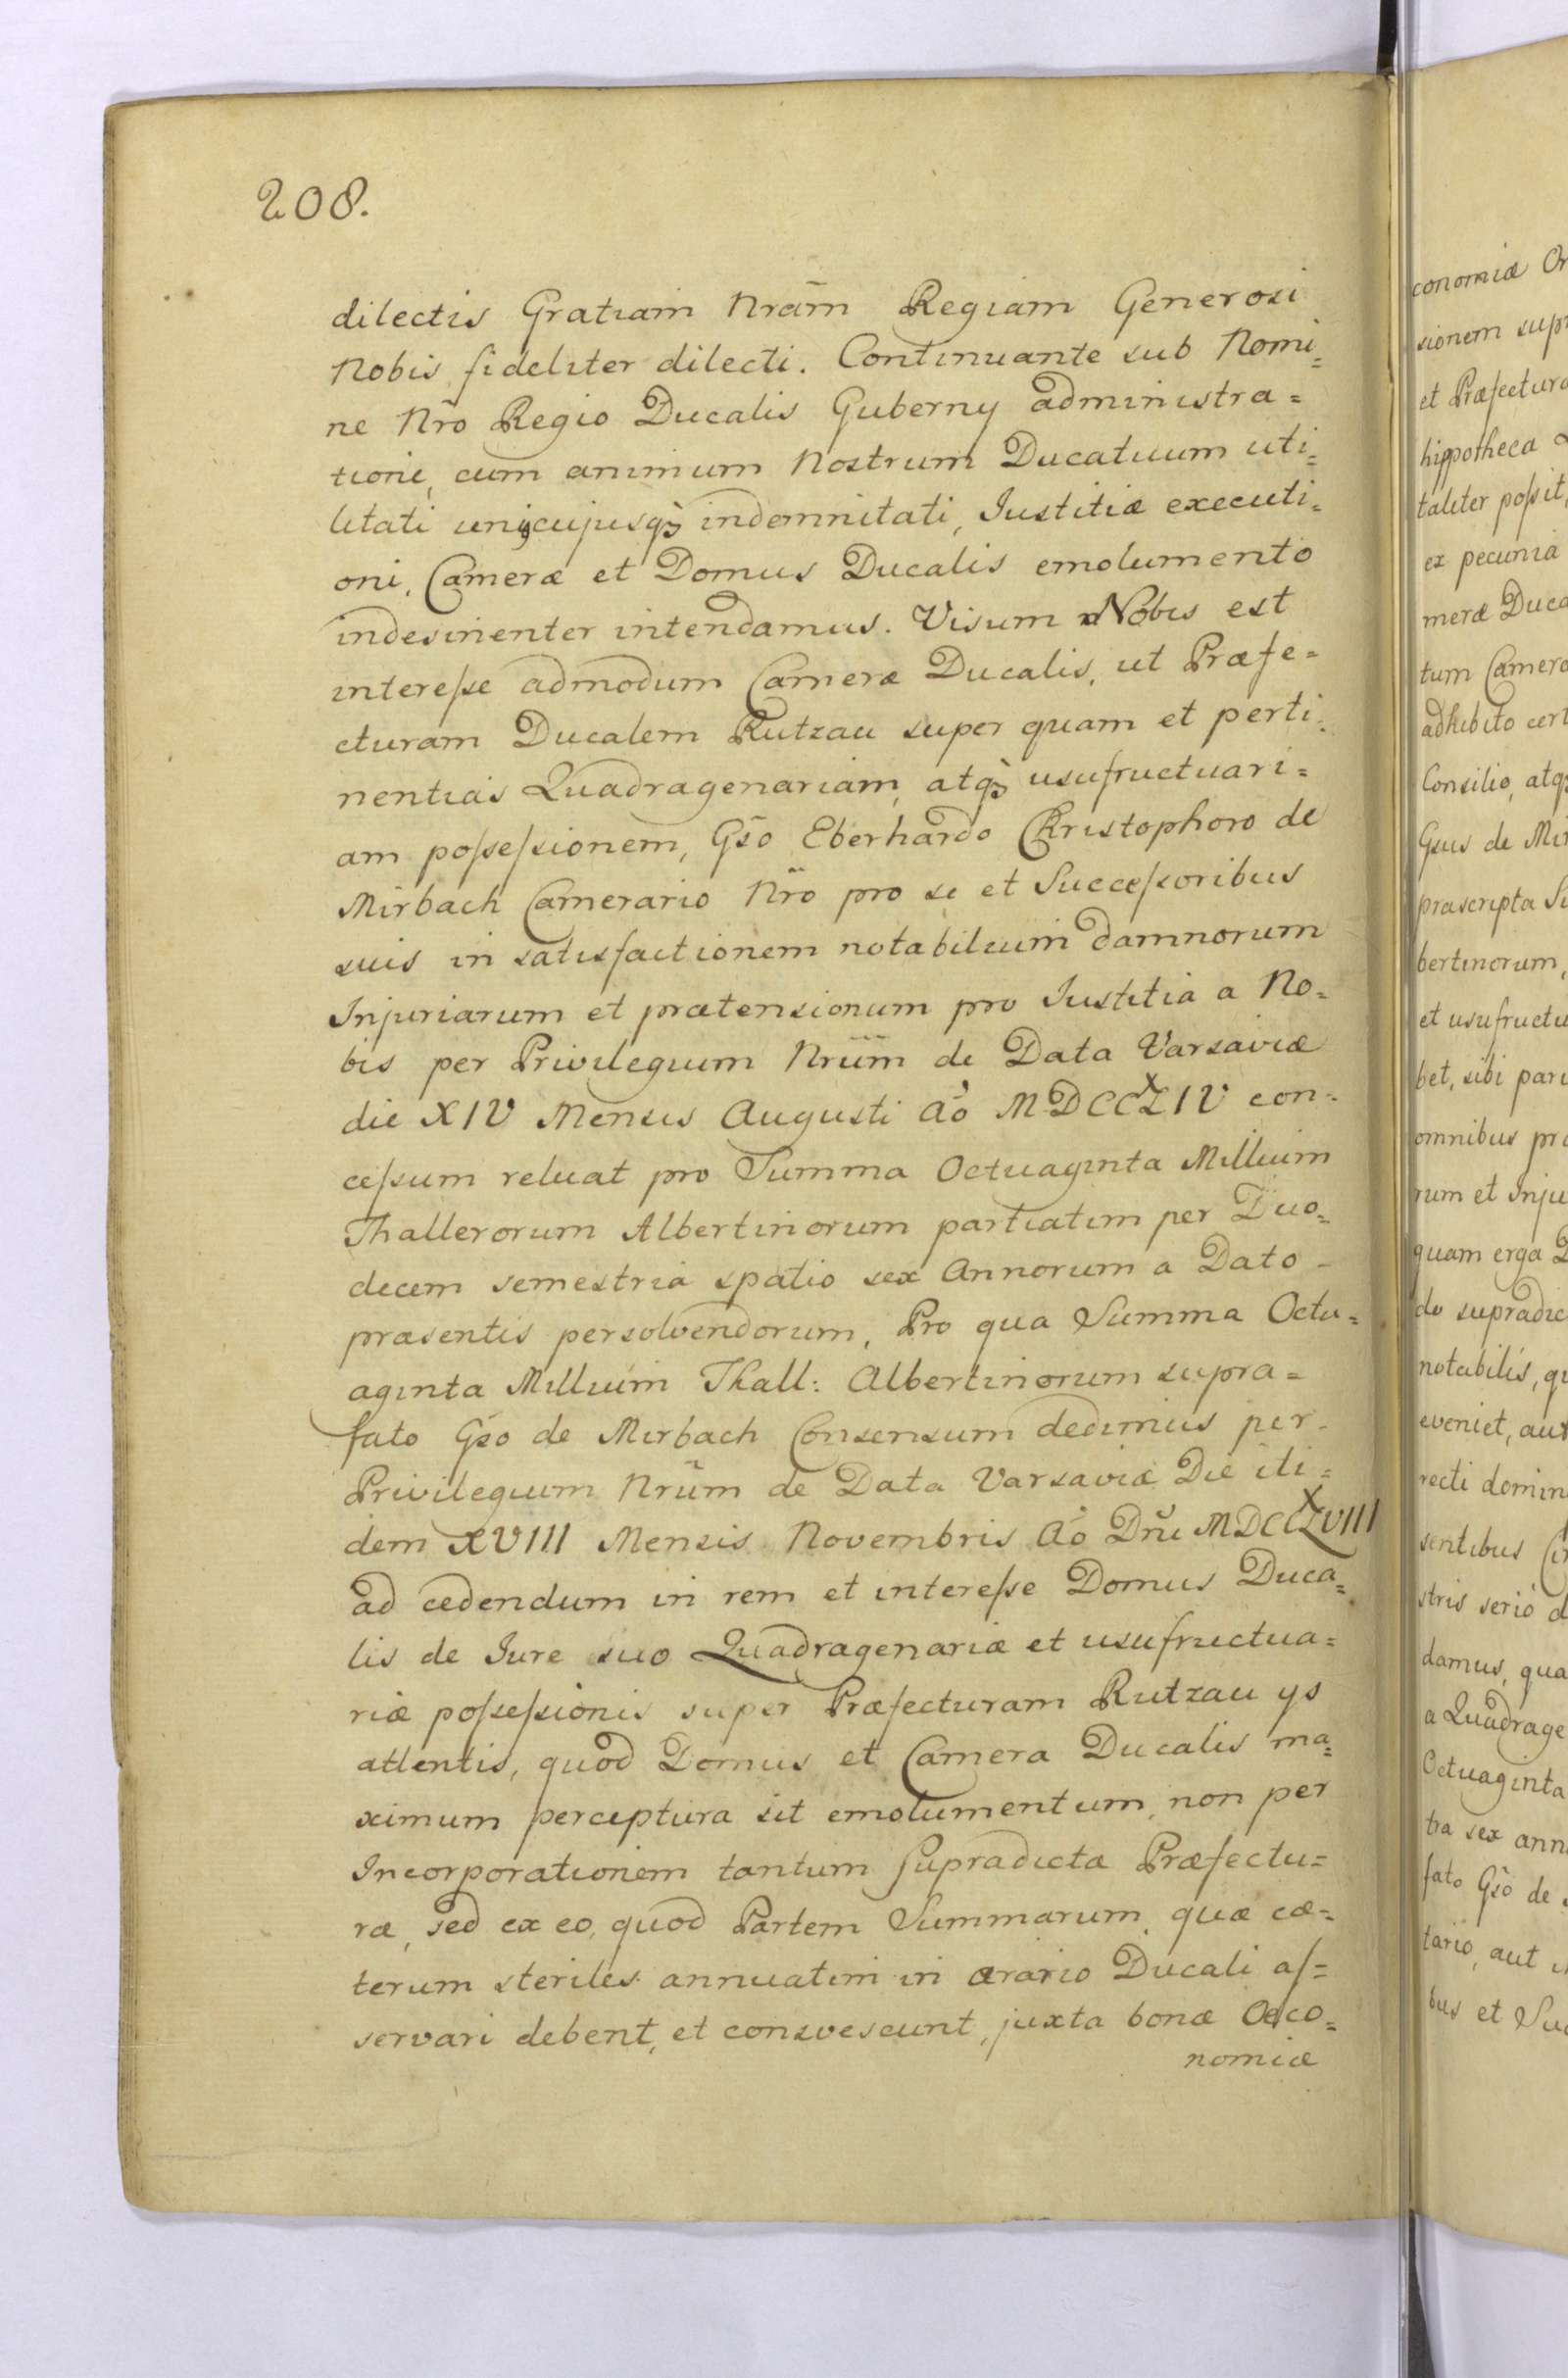 208.
dilectis Gratiam Nrām Regiam Generosi
Nobis fideliter dilecti. Continuante sub Nomi=
ne Nrō Regio Ducalis Guberny administra=
tione, cum animum Nostrum Ducatuum uti=
litati unicujusqꝫ indemnitati, Iustitiæ executi=
oni, Cameræ et Domus Ducalis emolumento
indesinenter intendamus. Visum Nobis est
intereſse admodum Cameræ Ducalis, ut Præfe=
cturam Ducalem Rutzau super quam et perti=
nentias Quadragenariam, atqꝫ usufructuari=
am poſseſsionem, Gsō Eberhardo Christophoro de
Mirbach Camerario Nrō pro se et Succeſsoribus
suis in satisfactionem notabilium damnorum
Injuriarum et prætensionum pro Iustitia a No=
bis per Privilegium Nrūm de Data Varsaviæ
die XIV Mensis Augusti Aō MDCCXLIV con=
ceſsum reluat pro Summa Octuaginta Millium
Thallerorum Albertinorum partiatim per Duo=
decem semestria spatio sex Annorum a Dato
præsentis persolvendorum, Pro qua Summa Octu=
aginta Millium Thall: Albertinorum supra=
fato Gsō de Mirbach Consensum dedimus per
Privilegium Nrūm de Data Varsaviæ Die iti=
dem XVIII Mensis Novembris Aō Dnī MDCCXLVIII
ad cedendum in rem et intereſse Domus Duca=
lis de Iure suo Quadragenariæ et usufructua=
riæ poſseſsionis super Præfecturam Rutzau ys
attentis, quod Domus et Camera Ducalis ma=
ximum perceptura sit emolumentum, non per
Incorporationem tantum supradictæ Præfectu=
ræ, sed ex eo, quod Partem Summarum, quæ cæ=
terum steriles annuatim in ærario Ducali aſ=
servari debent, et consvescunt, juxta bonæ Oeco=
nomiæ
conomiæ Or
sionem sup
et Præfectura
hippotheca
taliter poſsit,
ex pecunia
meræ Duca
tum Camera
adhibito cert
Consilio, atqꝫ
Gsus de Mir
præscripta Su
bertinorum,
et usufructu
bet, sibi pari
omnibus pra
rum et Inju
quam erga D
do supradic
notabilis, qu
eveniet, aut
recti domin
sentibus Ci
stris serio d
damus, qua
a Quadrage
Octuaginta
tra sex anni
fato Gsō de
tario, aut
bus et Suc